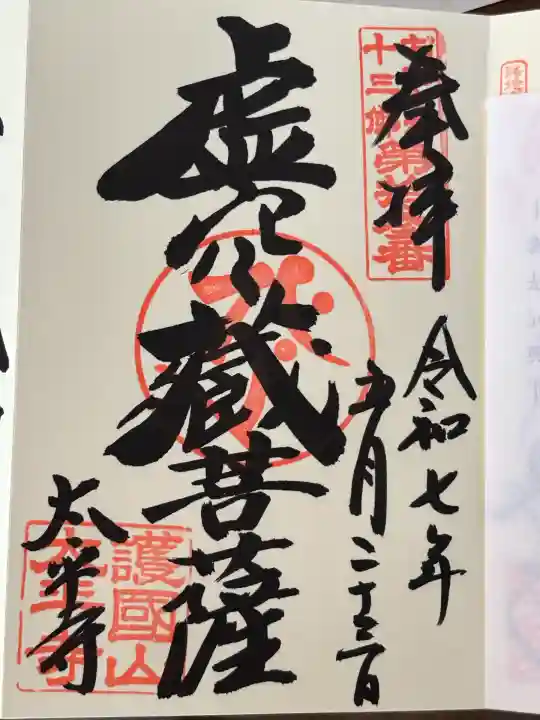 奉拝
十三佛第拾三番
令和七年
五月二十三日
虚空蔵菩薩
太平寺
護國山
太平寺